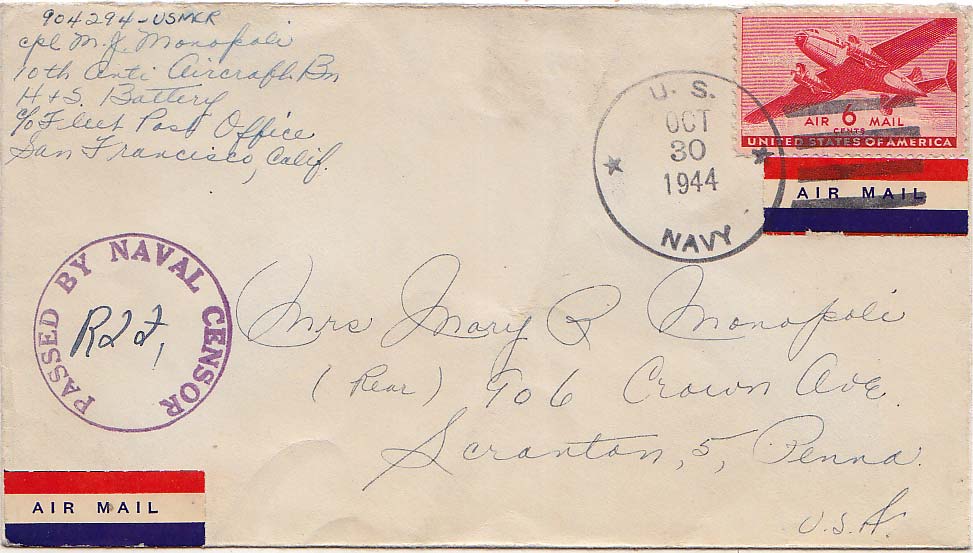 904294-USMCR
Cpl M. J. Monopoli
10th Anti Aircraft Bn
H+S. Battery
c/o Fleet Post Office
San Francisco, Calif.
U. S.
OCT
30
1944
NAVY
AIR 6 MAIL
CENTS
UNITED STATES OF AMERICA
AIR MAIL
PASSED BY NAVAL CENSOR
Mrs Mary R Monopoli
(Rear) 906 Crown Ave.
Scranton, 5, Penna.
U.S.A.
AIR MAIL